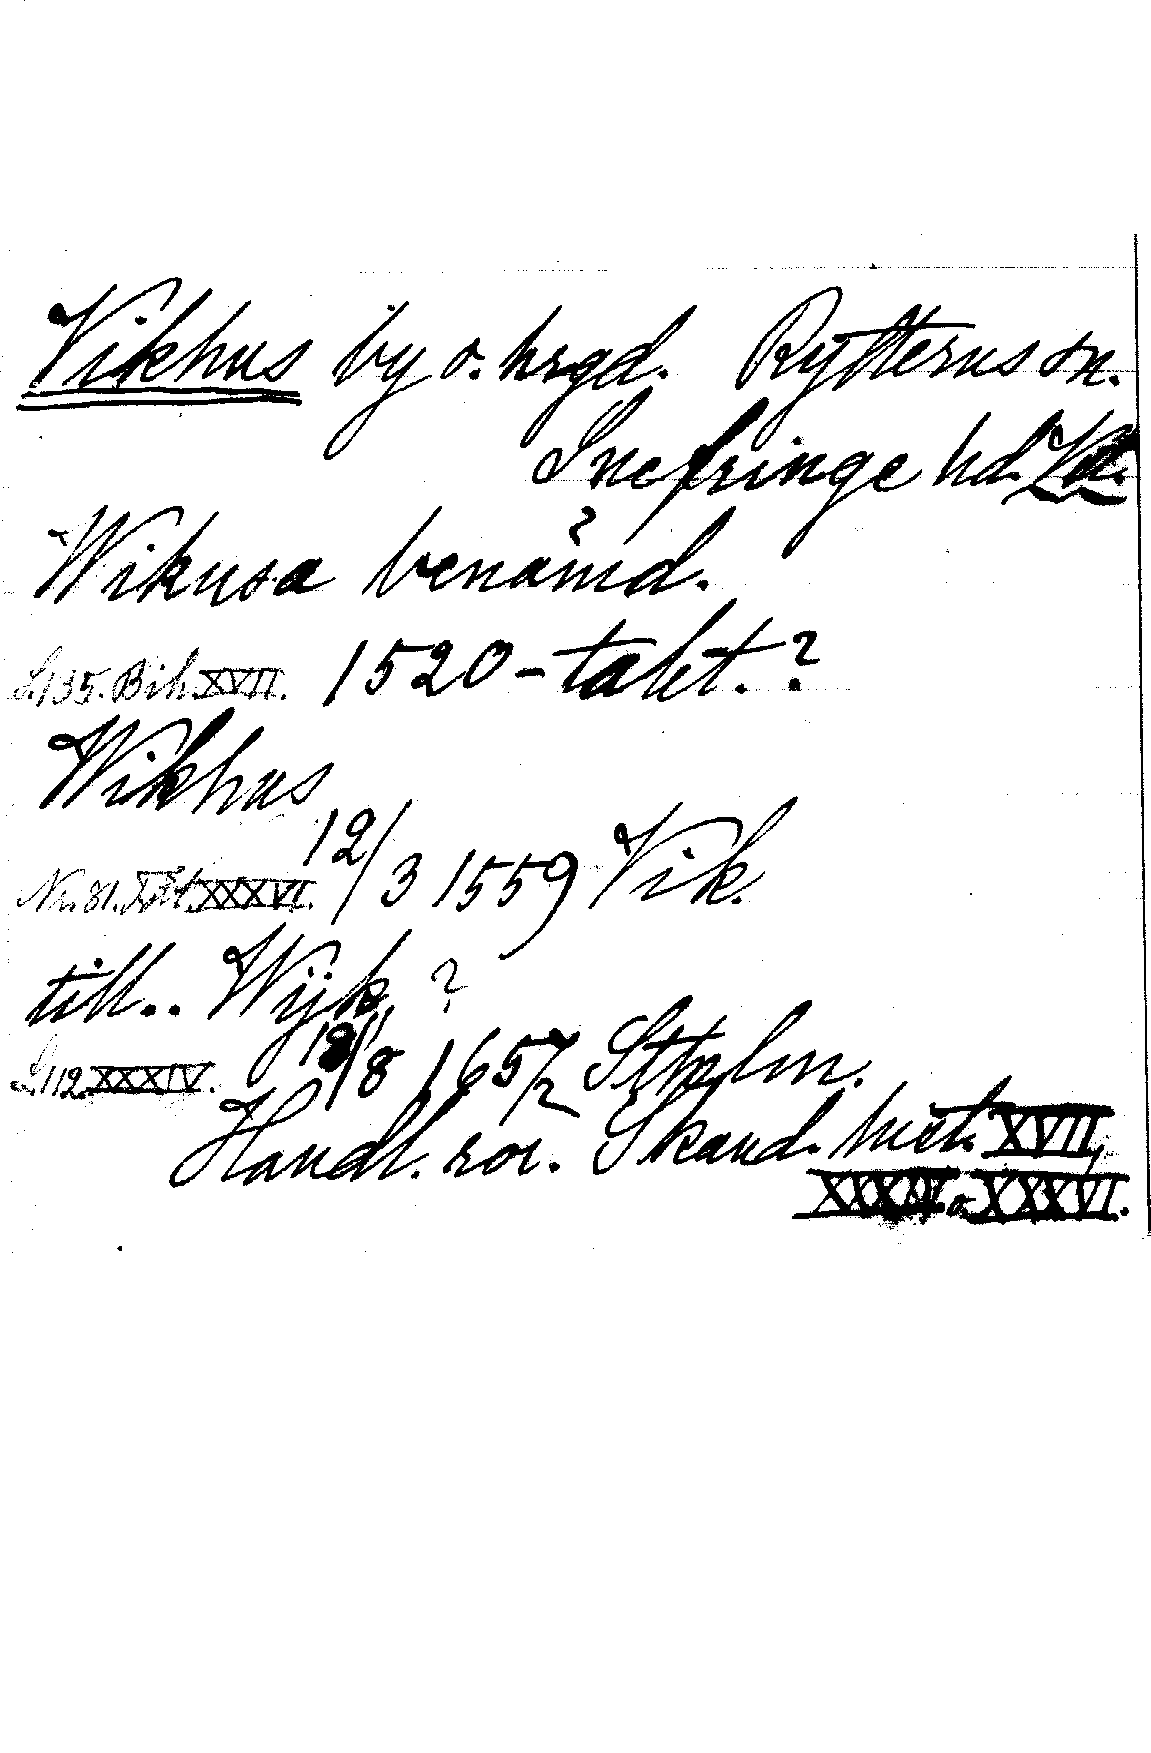 Vikhus by o. hrgd. Rytterns sn.
Snefringe hd.
Wikusa benämd.
S. 135. Bih. XVII. 1520-talet. ?
Wikhus
12/3 1559 Vik.
Nr. 81. XXXVI.
till.. Wijk, ?
S. 112 XXXIV. 18/8 1657 Sthglm.
Handl. rör. Skand. hist. XVII,
XXXIV o. XXXVI.